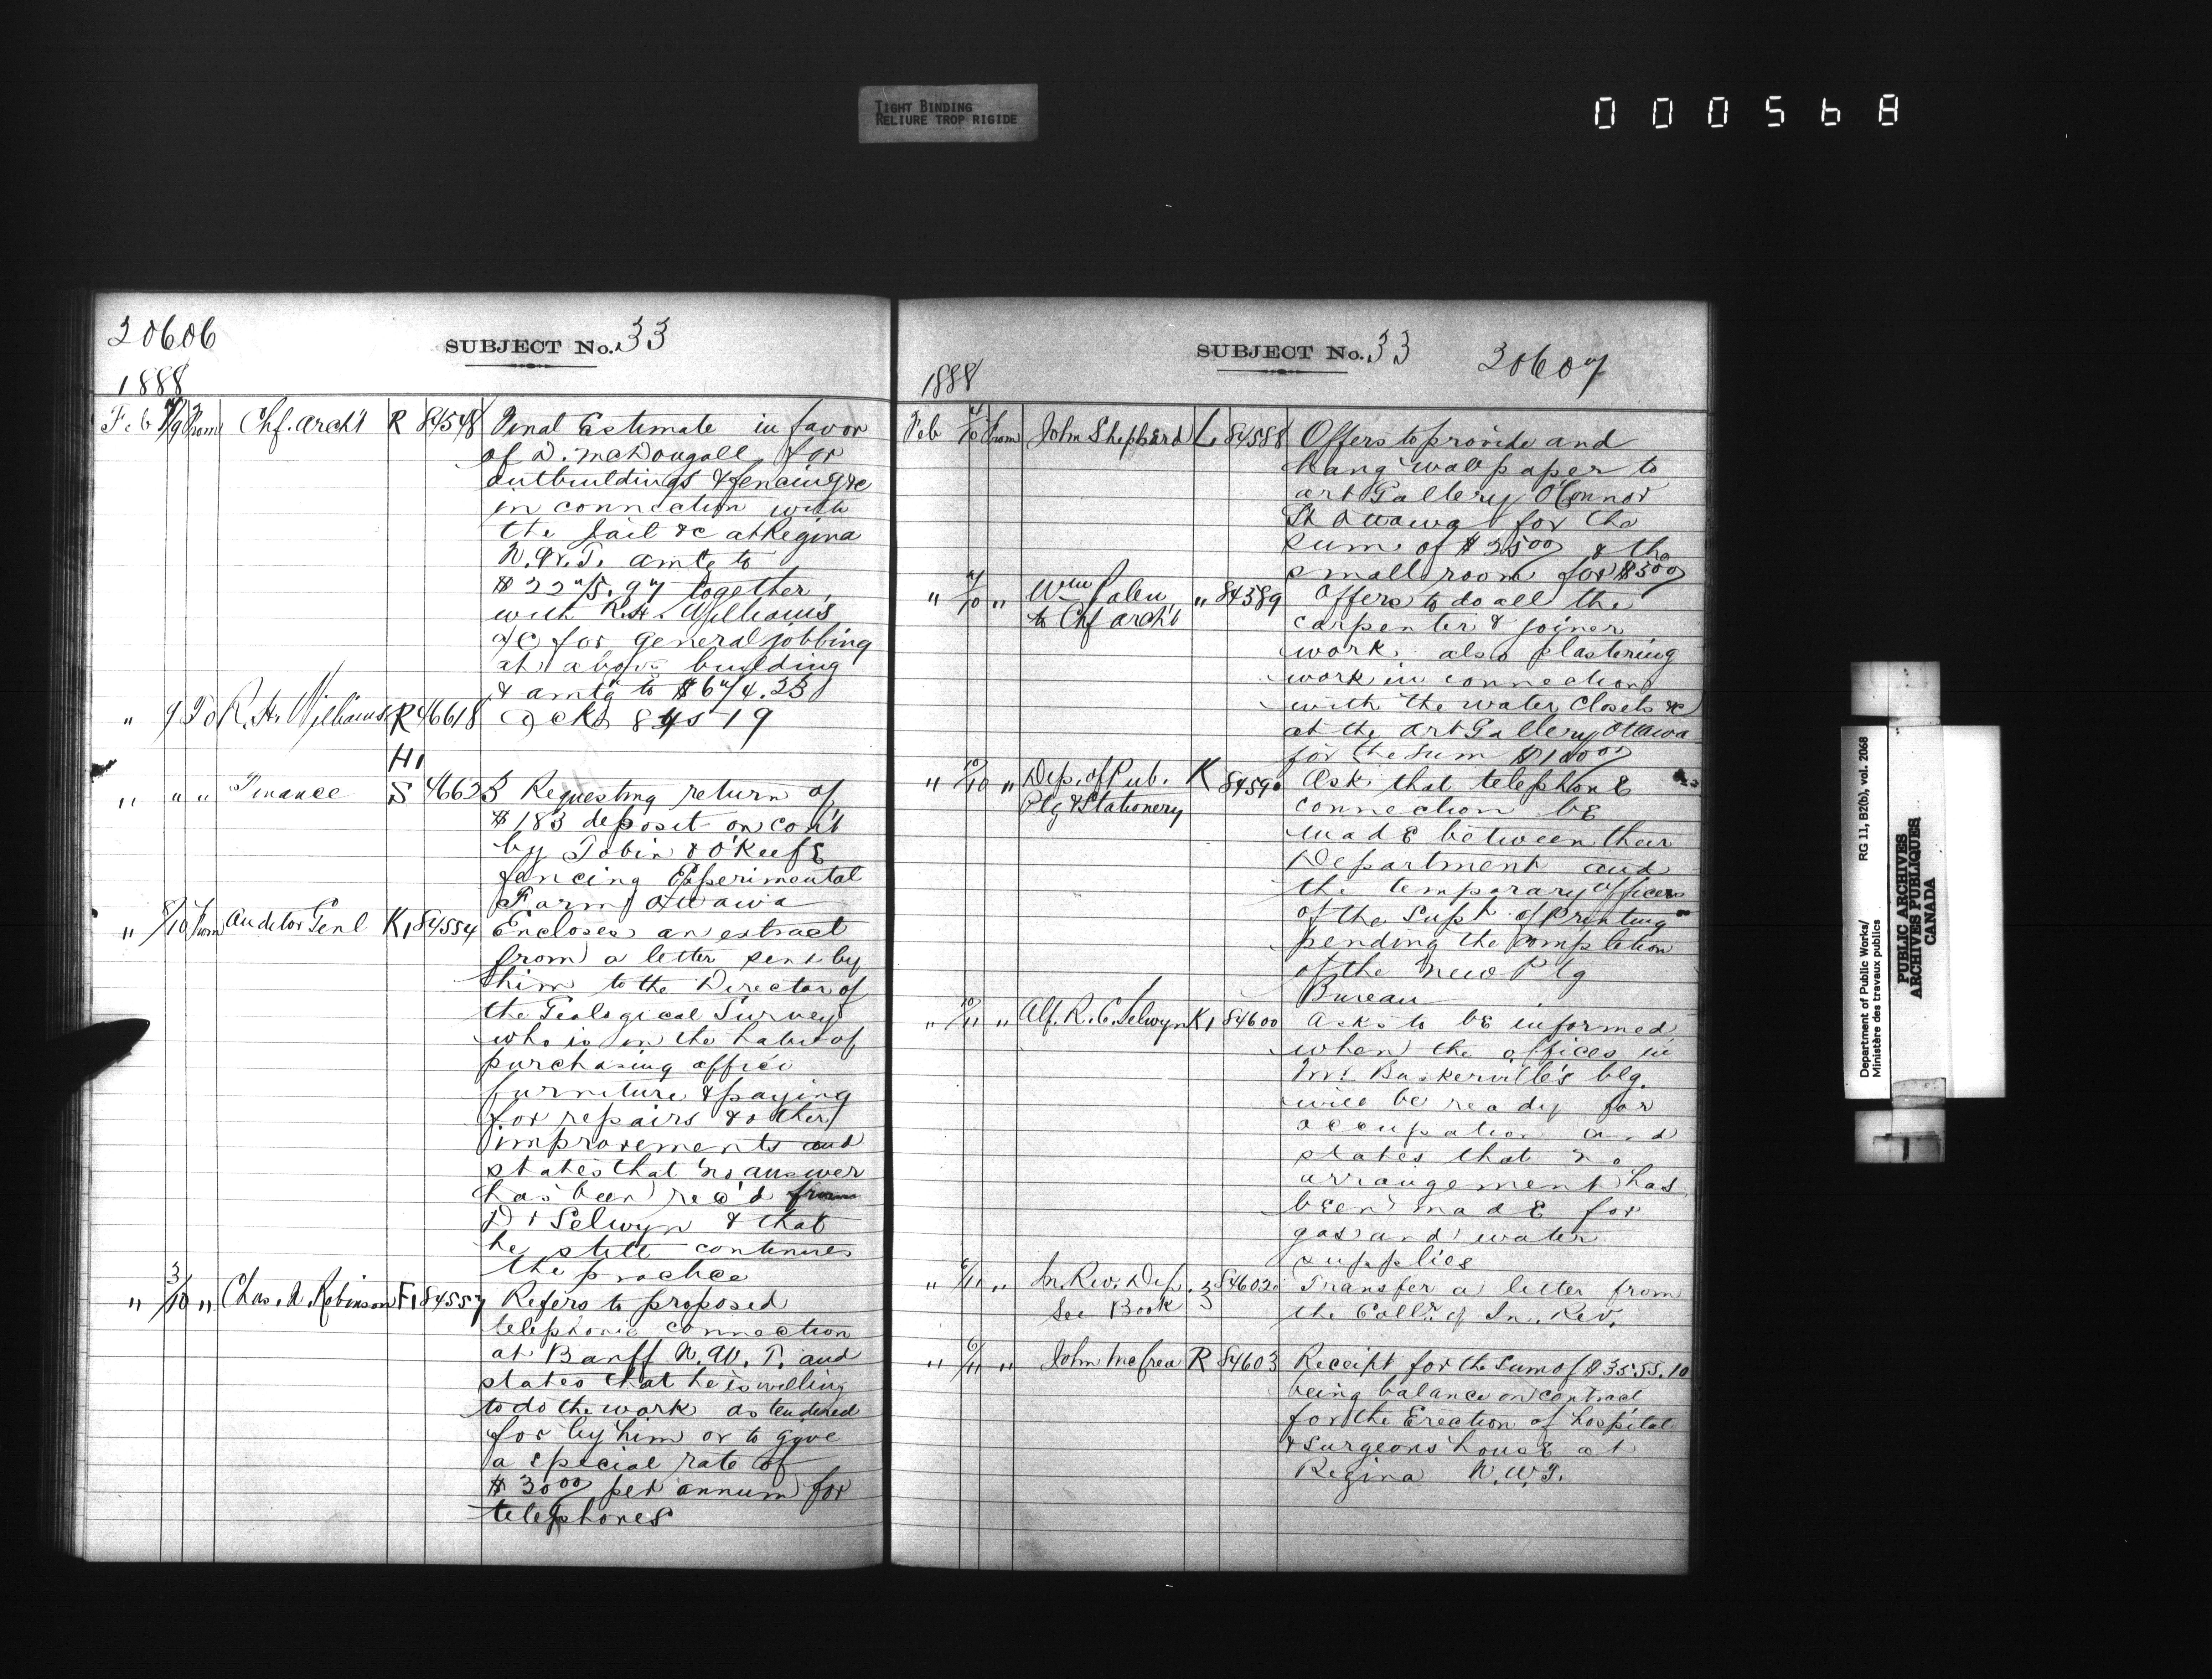 TIGHT BINDING
RELIURE TROP RIGIDE
000568
20606
SUBJECT No. 33
1888
Feb 7/9 From Chf. Archt R 84548 Final Estimate in favor
of D. McDougall for
outbuildings & fencing &c
in connection with
the Jail &c at Regina
N.W.T. amtg to
$2275.97 together
with R.H. Williams
a/c for general jobbing
at above building
& amtg to $674.23
" 9 To R. H. Williams R 46618 Ackg 84519
H1
" " " Finance S 46623 Requesting return of
$183 deposit on cont
by Tobin & O'Keefe
fencing Experimental
Farm Ottawa
" 8/10 From Auditor Genl K1 84554 Encloses an extract
from a letter sent by
him to the Director of
the Geological Survey
who is in the habit of
purchasing office
furniture & paying
for repairs & other
improvements and
states that no answer
has been rec'd from
Dr Selwyn & that
he still continues
the practice
" 3/10 " Chas. N. Robinson F1 84557 Refers to proposed
telephonic connection
at Banff N.W.T. and
states that he is willing
to do the work as tendered
for by him or to give
a special rate of
$30 00 per annum for
telephones
SUBJECT No. 33
20607
1888
Feb /10 From John Shepherd L 84588 Offers to provide and
hang wallpaper to
Art Gallery O'Connor
St Ottawa for the
sum of $25 00 & the
small room for $5 00
" 7/10 " Wm
to Chf Archt " 84589 Offers to do all the
carpenter & joiner
work, also plastering
work in connection
with the water closets &c
at the Art Gallery Ottawa
for the sum $100 00
" 10/10 " Dep. of Pub.
Ptg & Stationery K 84590 Ask that telephone
connection be
made between their
Department and
the temporary offices
of the Supt. of Printing
pending the completion
of the new Ptg
Bureau
" 10/11 " Alf. R. C. Selwyn K1 84600 Asks to be informed
when the offices in
Mr Baskerville's blg.
will be ready for
occupation and
states that no
arrangement has
been made for
gas and water
supplies
" 6/11 " In. Rev. Dep.
See Book 3 84602 Transfer a letter from
the Collr of In. Rev.
" 6/11 " John McCrea R 84603 Receipt for the sum of $3555.10
being balance on contract
for the Erection of hospital
& Surgeons house at
Regina N.W.T.
Department of Public Works/
Ministère des travaux publics
RG 11, B2(b), vol. 2068
PUBLIC ARCHIVES
ARCHIVES PUBLIQUES
CANADA